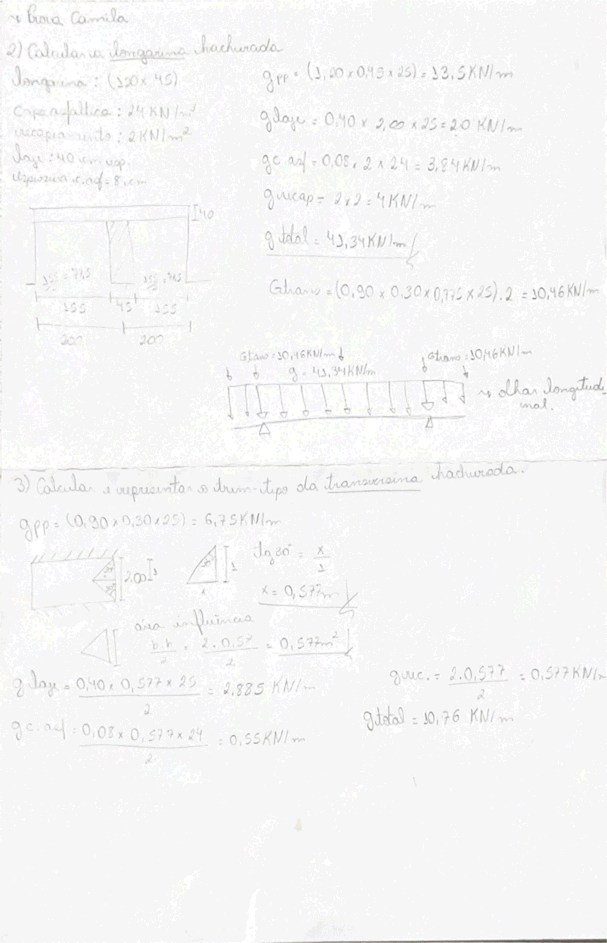 Prova Camila
2) Calcular a longarina hachurada
longarina: (120 x 45)
capa asfáltica: 24 KN/m³
recapeamento: 2KN/m²
laje: 40 cm esp.
espessura c. asf = 8 cm
gpp = (1,20 x 0,45 x 25) = 13,5KN/m
glaje = 0,40 x 2,00 x 25 = 20 KN/m
gc. asf = 0,08 x 2 x 24 = 3,84KN/m
grecap = 2 x 2 = 4KN/m
gtotal = 41,34KN/m
Gtrans = (0,90 x 0,30 x 0,775 x 25) . 2 = 10,46KN/m
40
155 = 77,5
155 = 77,5
155
45
155
200
200
Gtrans = 10,46KN/m
Gtrans = 10,46KN/m
g = 41,34KN/m
olhar longitudi
nal.
3) Calcular e representar o trem-tipo da transversina hachurada.
gpp = (0,90 x 0,30 x 25) = 6,75KN/m
2.00
1
30°
1
x
tg 30° = x/1
x = 0,577m
área influência
b.h/2 = 2.0,57/2 = 0,577m²
glaje = 0,40 x 0,577 x 25/2 = 2,885 KN/m
gc. asf = 0,08 x 0,577 x 24/2 = 0,55KN/m
grec. = 2.0,577/2 = 0,577KN/m
gtotal = 10,76 KN/m